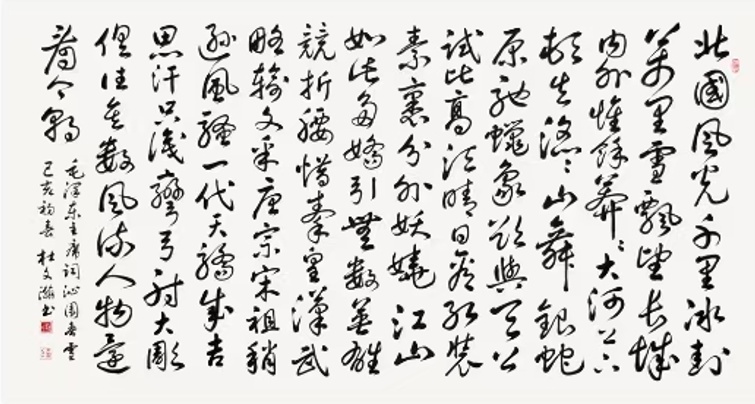 北國風光千里冰封
萬里雪飄望長城
内外惟餘莽〻大河上下
頓失滔〻山舞銀蛇
原馳蠟象欲與天公
試比高須晴日看紅裝
素裹分外妖嬈江山
如此多嬌引無數英雄
競折腰惜秦皇漢武
略輸文采唐宗宋祖稍
遜風騷一代天驕成吉
思汗只識彎弓射大雕
俱往矣數風流人物還
看今朝
毛澤東主席詞沁園春雪
己亥初春 杜文書